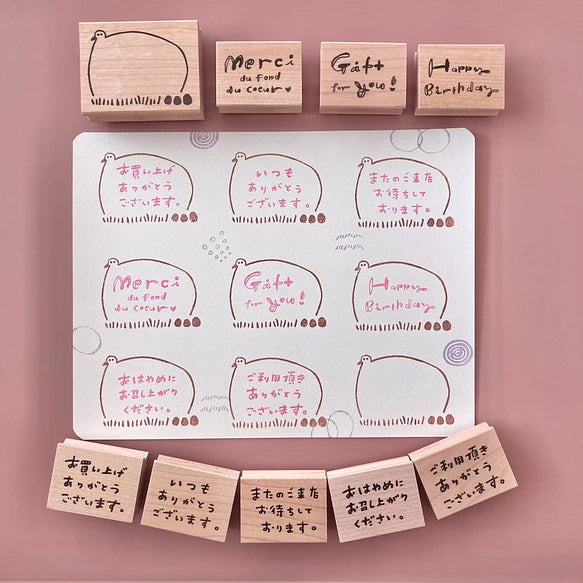 Merci
du fond
du coeur
Gift
for you!
Happy
Birthday
お買い上げ
ありがとう
ございます。
いつも
ありがとう
ございます。
またのご来店
お待ちして
おります。
Merci
du fond
du coeur
Gift
for you!
Happy
Birthday
おはやめに
お召し上がり
ください。
ご利用頂き
ありがとう
ございます。
お買い上げ
ありがとう
ございます。
いつも
ありがとう
ございます。
またのご来店
お待ちして
おります。
おはやめに
お召し上がり
ください。
ご利用頂き
ありがとう
ございます。